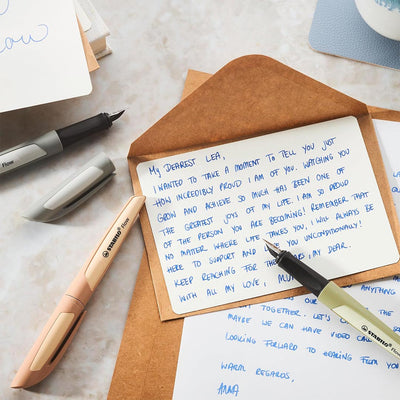 low
Flow
MY DEAREST LEA,
I WANTED TO TAKE A MOMENT TO TELL YOU JUST
HOW INCREDIBLY PROUD I AM OF YOU. WATCHING YOU
GROW AND ACHIEVE SO MUCH HAS BEEN ONE OF
THE GREATEST JOYS OF MY LIFE. I AM SO PROUD
OF THE PERSON YOU ARE BECOMING! REMEMBER THAT
NO MATTER WHERE LIFE TAKES YOU, I WILL ALWAYS BE
HERE TO SUPPORT AND YOU UNCONDITIONALLY!
KEEP REACHING FOR THE MY DEAR.
WITH ALL MY LOVE,
STABILO Flow
STABILO
ANYTHING
TOGETHER. LET'S
MAYBE WE CAN HAVE VIDEO CALL
LOOKING FORWARD TO HEARING FROM YOU
WARM REGARDS,
ANNA